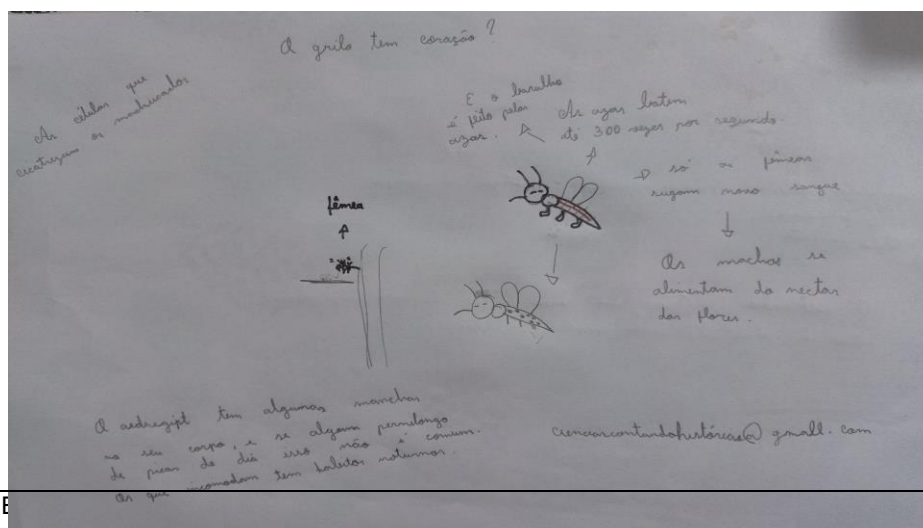 O grilo tem coração?
As células que
cicatrizam os machucados
E o barulho
é feito pelas
azas.
As azas batem
até 300 vezes por segundo.
só as fêmeas
sugam nosso sangue
Os machos se
alimentam do nectar
das flores.
fêmea
O aedregipt tem algumas manchas
no seu corpo, e se algum pernilongo
te picar de dia isso não é comum.
Os que incomodam tem habitos noturnos.
cienciascontandohistórias@gmail.com
E